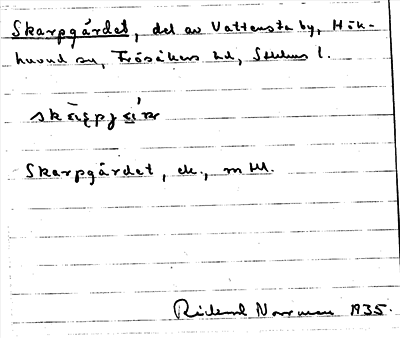 Skarpgårdet, del av Vattensta by, Hök-
huvud sn, Frösåkers hd, Sthlms l.
Skarpgårdet, ek., m HH.
Rickard Norrman 1935.